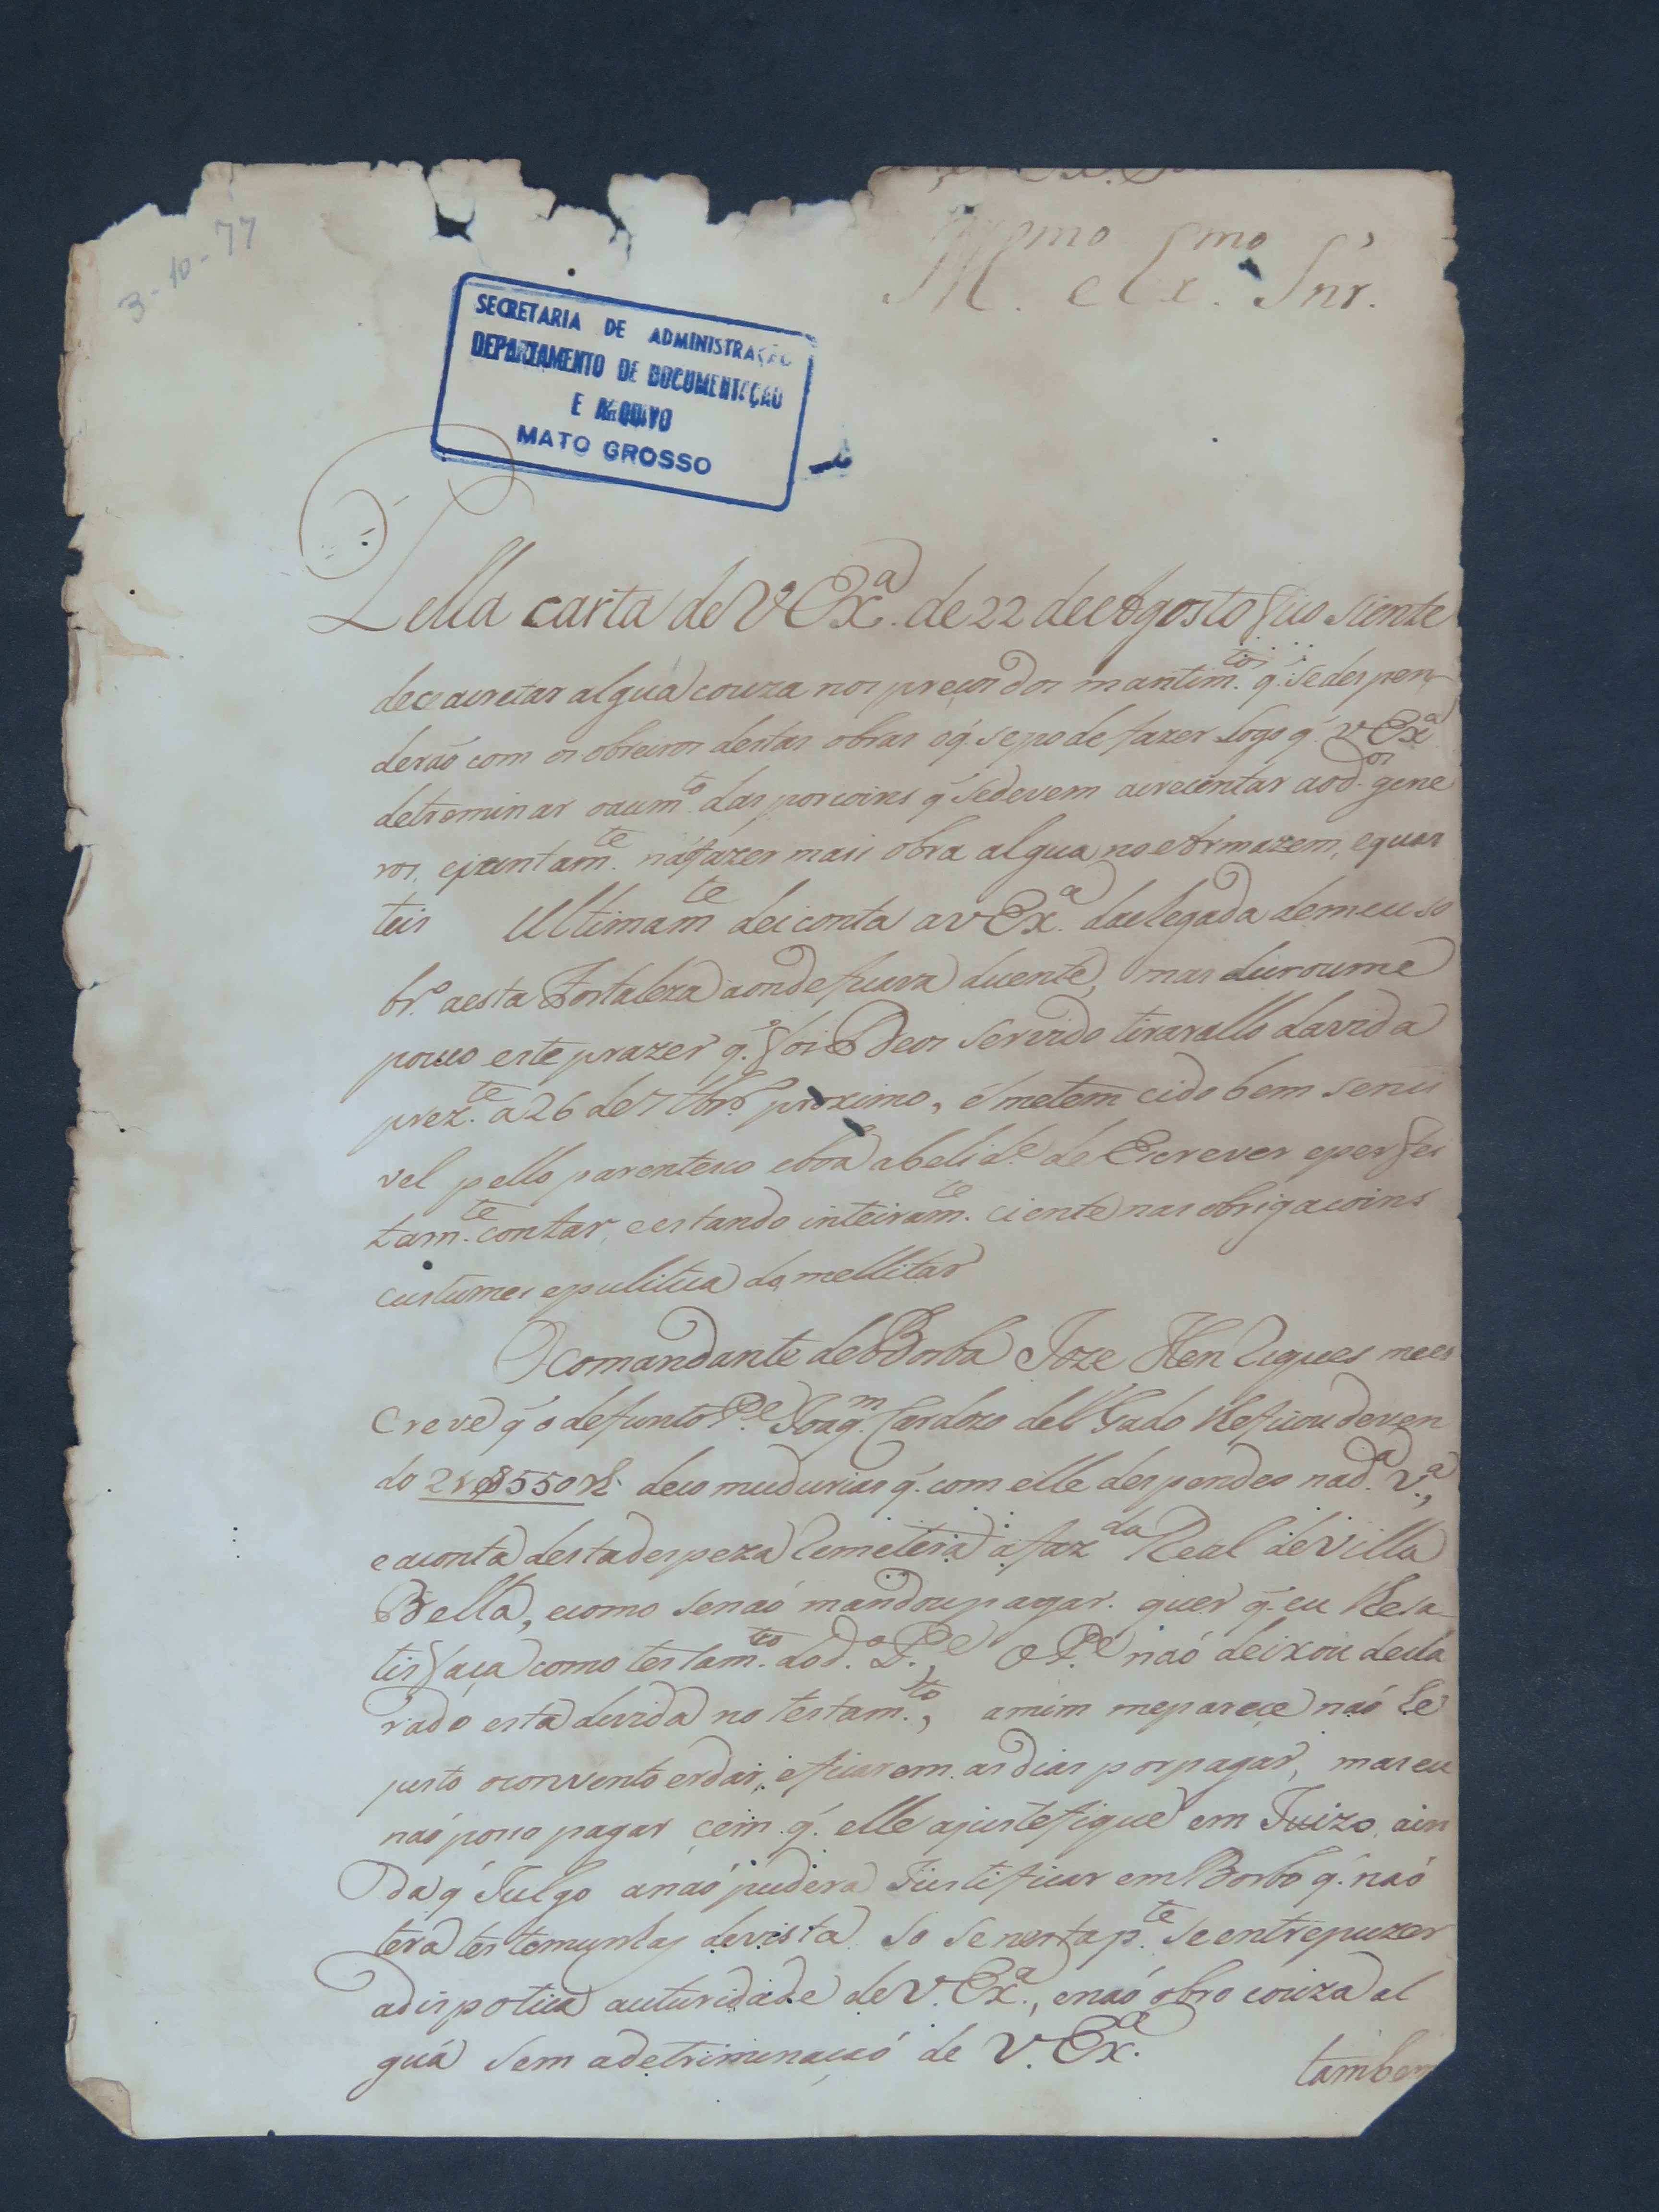 3-10-77
Ill.mo e Ex.mo Snr.
SECRETARIA DE ADMINISTRAÇÃO
DEPARTAMENTO DE DOCUMENTAÇÃO
E ARQUIVO
MATO GROSSO
Pella carta de V Ex.ª de 22 de Agosto fico siente
de creçer algúa couza nos preços dos mantim.tos q̃ se despen-
deraó com os obreiros destas obras o q̃ se pode fazer logo q̃ V Ex.ª
detreminar o aum.to das porcoins q̃ se devem acrecentar aos d.os gene
ros, e juntam.te naó fazer mais obra algua no Armazem, e quar
teis Ultimam.te dei conta a V Ex.ª da chegada de meu so
br.º a esta Fortaleza aonde ficava duente, mas duroume
pouco este prazer q̃ foi Deos servido tirarallo da vida
prez.te a 26 de 7bro proximo, é me tem cido bem senci
vel pello parentesco e boa abelid.e de Escrever e perfei
tam.te contar, e estando inteiram.te ciente nas obrigacoins
custumes e pulitica da mellitar
O comandante de Borba Joze Henriques me es
creve q̃ o defunto P.e Joaq.m Cardozo delGado lhe ficou deven
do 21$550 r.s de comudurias q̃ com elle despendeo na d.ª V.ª,
e a conta desta despeza Remetera a faz.da Real de Villa
Bella, e como se naó mandou pagar quer q̃ eu lhe sa-
tisfaça como testam.to do d.º P.e, O P.e naó deixou decla
rado esta divida no testam.to, a mim me parece naó he
justo o convento erdar, e ficarem as dias por pagar, mas eu
naó poso pagar cem q̃ elle ajustefique em Juizo, ain
da q̃ Julgo a naó pudera Justificar em Borba q̃ naó
tera testemunhas de vista so se nesta p.te se entrepuzer
a dispotica auturidade de V. Ex.ª, e naó obro couza al
guá sem a detriminaçaó de V. Ex.ª
tambem